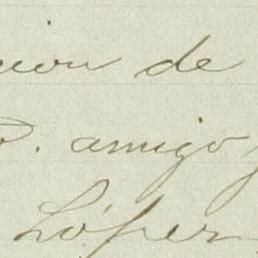 cion de
D. amigo y
López